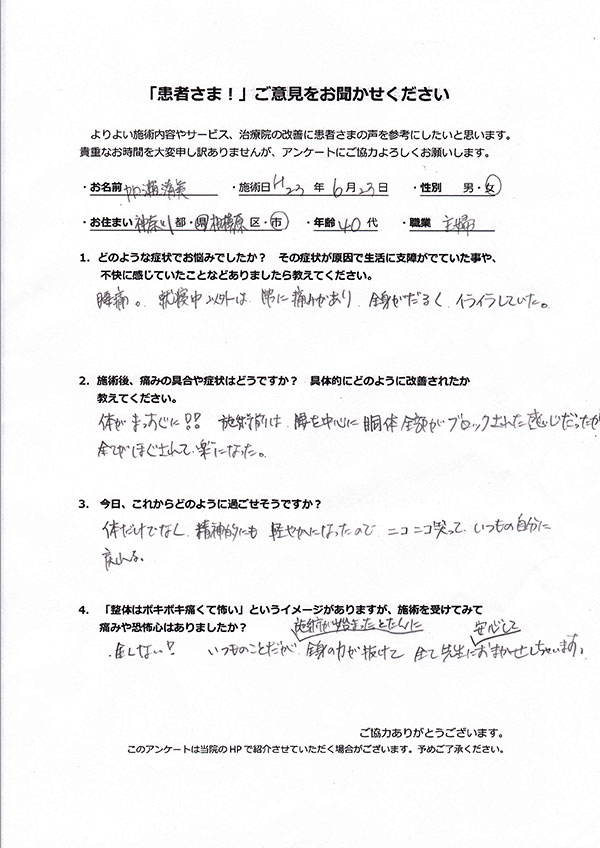 「患者さま！」ご意見をお聞かせください
よりよい施術内容やサービス、治療院の改善に患者さまの声を参考にしたいと思います。
貴重なお時間を大変申し訳ありませんが、アンケートにご協力よろしくお願いします。
・お名前 加瀬 清美 ・施術日 H23 年 6月23日 ・性別 男・女
・お住まい 神奈川 都・県 相模原 区・市 ・年齢 40 代 ・職業 主婦
1．どのような症状でお悩みでしたか？ その症状が原因で生活に支障がでていた事や、
不快に感じていたことなどありましたら教えてください。
腰痛。 就寝中以外は 常に痛みがあり 全身がだるく イライラしていた。
2．施術後、痛みの具合や症状はどうですか？ 具体的にどのように改善されたか
教えてください。
体がまっすぐに!! 施術前は 腰を中心に 胴体全部がブロックされた感じだったが
全てがほぐされて 楽になった。
3．今日、これからどのように過ごせそうですか？
体だけでなく 精神的にも 軽やかになったので ニコニコ笑って いつもの自分に
戻れる。
4．「整体はボキボキ痛くて怖い」というイメージがありますが、施術を受けてみて
痛みや恐怖心はありましたか？ 施術が始まったとたんに 安心して
全くない! いつものことだが 全身の力が抜けて 全て先生におまかせしちゃいます。
ご協力ありがとうございます。
このアンケートは当院のHPで紹介させていただく場合がございます。予めご了承ください。